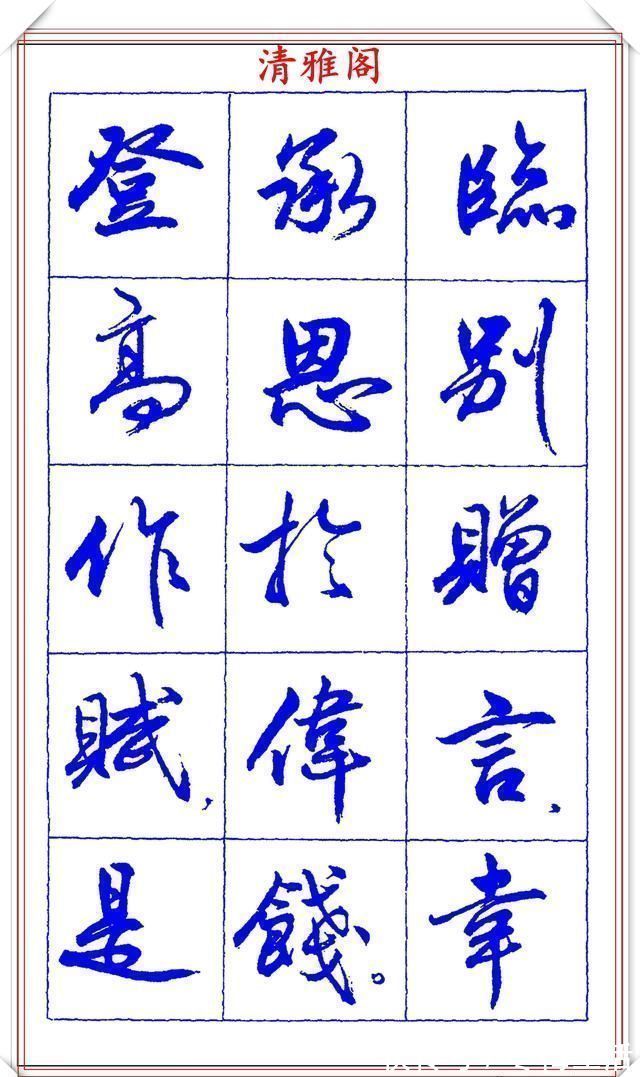 清雅阁
臨别贈言，幸
承恩於偉餞。
登高作賦，是